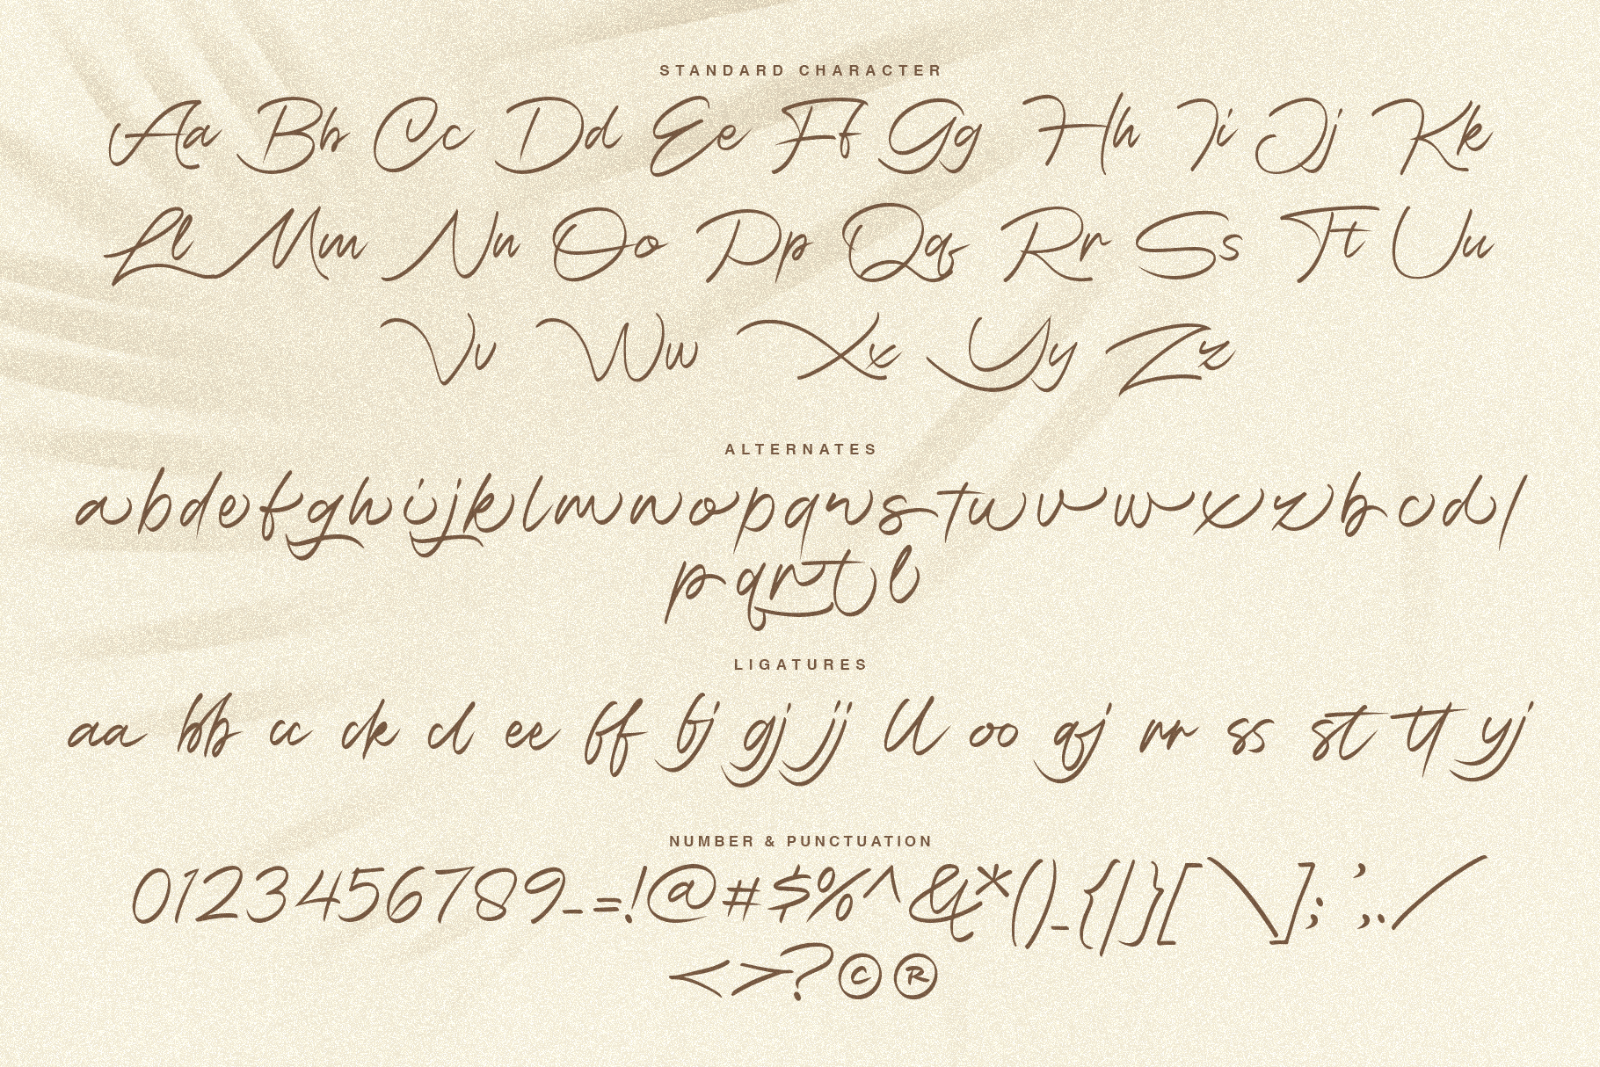 STANDARD CHARACTER
Aa Bb Cc Dd Ee Ff Gg Hh Ii Jj Kk
Ll Mm Nn Oo Pp Qq Rr Ss Tt Uu
Vv Ww Xx Yy Zz
ALTERNATES
abdefghijklmnopqrstuvwxzbcdl
pqrtl
LIGATURES
aa bb cc ck cl ee ff fj gj jj ll oo qj rr ss st tt yj
NUMBER & PUNCTUATION
0123456789-=!@#$%^&*()_{|}[\];',./
<>?©®